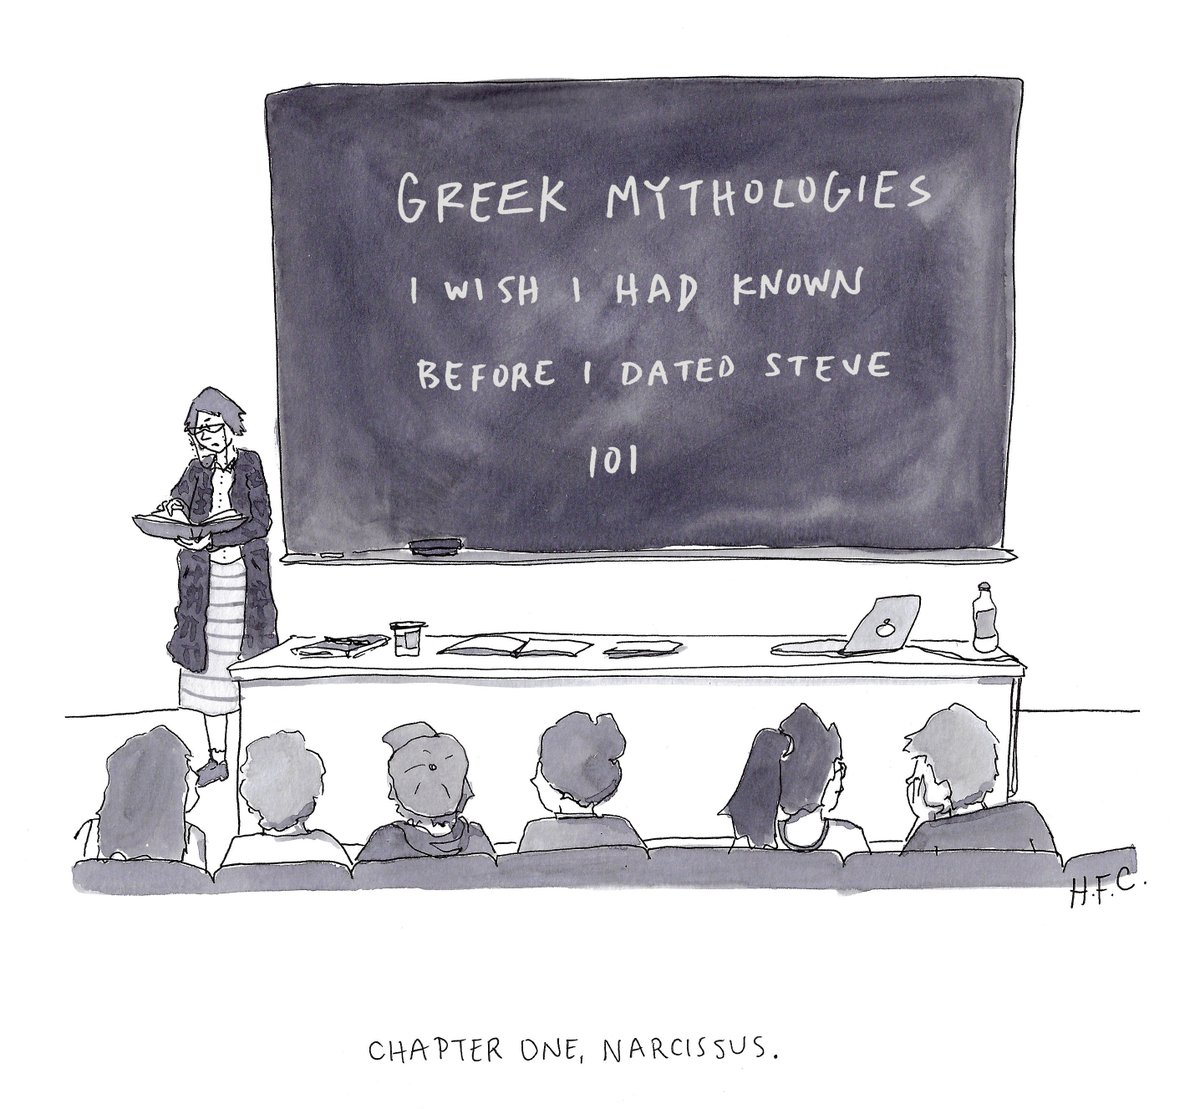 GREEK MYTHOLOGIES
I WISH I HAD KNOWN
BEFORE I DATED STEVE
101
H.F.C.
CHAPTER ONE, NARCISSUS.